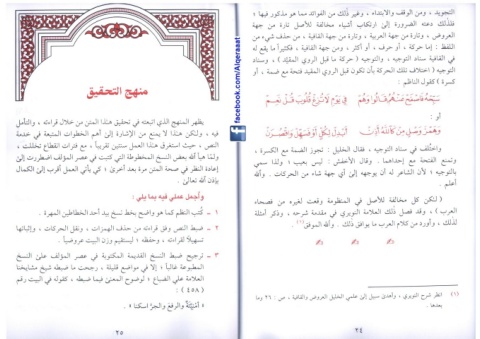 التجويد ، ومن الوقف والابتداء ، وغير ذلك من الفوائد مما هو مذكور فيها ؛
فلذلك دعته الضرورة إلى ارتكاب أشياء مخالفة للأصل تارة من جهة
العروض ، وتارة من جهة العربية ، وتارة من جهة القافية ، من حذف شيء من
اللفظ : إما حركة ، أو حرف ، أو أكثر ، ومن جهة القافية ، فكثيرا ما يقع له
في القافية سناد التوجيه ، والتوجيه ( حركة ما قبل الروي المقيد ) ، وسناد
التوجيه ( اختلاف تلك الحركة بأن تكون قبل الروي المقيد فتحة مع ضمة ، أو
أو :
واختلف في سناد التوجيه ، فقال الخليل : تجوز الضمة مع الكسرة ،
وتمنع الفتحة مع إحداهما . وقال الأخفش : ليس بعيب ؛ ولذا سمي
التوجيه ؛ لأن الشاعر له أن يوجهه إلى أي جهة شاء من الحركات . والله
( لكن كل مخالفة للأصل في المنظومة وقعت لغيره من فصحاء
العرب ) ، وقد فصل ذلك العلامة النويري في مقدمة شرحه ، وذكر أمثلة
لذلك ، وأورد من كلام العرب ما يوافق ذلك . والله الموفق (١)
(١) انظر شرح النويري ، وأهدى سبيل إلى علمي الخليل العروض والقافية ، ص : ٢٦ وما
بعدها .
٢٤
facebook.com/Alqeraaat
منهج التحقيق
يظهر المنهج الذي اتبعته في تحقيق هذا المتن من خلال قراءته ، والتأمل
فيه ، ولكن هذا لا يمنع من الإشارة إلى أهم الخطوات المتبعة في خدمة
النص ، حيث استغرق هذا العمل سنتين تقريبا ، مع فترات انقطاع تخللت ،
ولما هيأ الله بعض النسخ المخطوطة التي كتبت في عصر المؤلف اضطررت إلى
إعادة النظر في صحة المتن مرة بعد أخرى ؛ كي يأتي العمل أقرب إلى الكمال
بإذن الله تعالى .
وأجمل عملي فيه بما يلي :
١ - كتب النظم كما هو واضح بخط نسخ بيد أحد الخطاطين المهرة .
٢ - ضبط النص وفق قراءته من حذف الهمزات ، ونقل الحركات ، وإثباتها
تسهيلا لقراءته ، وحفظه ؛ ليستقيم وزن البيت عروضيا .
٣ - ترجيح ضبط النسخ القديمة المكتوبة في عصر المؤلف على النسخ
المطبوعة غالبا ؛ إلا في مواضع قليلة ، رجحت ما ضبطه شيخ مشايخنا
العلامة علي الضباع ؛ لوضوح المعنى فيما ضبطه ، كقوله في البيت رقم
( ٤٥٨ ) :
« أمنية والرفع والجر اسكنا » .
٢٥